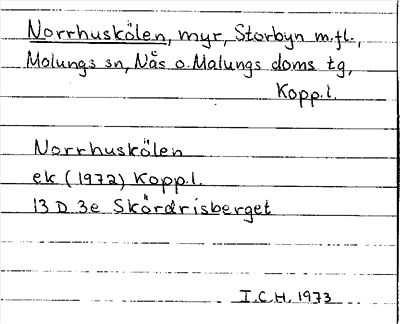 Norrhuskölen, myr, Storbyn m.fl.,
Malungs sn, Nås o. Malungs doms tg,
Kopp.l.
Norrhuskölen
ek (1972) Kopp.l.
13 D 3e Skördrisberget
I.C.H. 1973